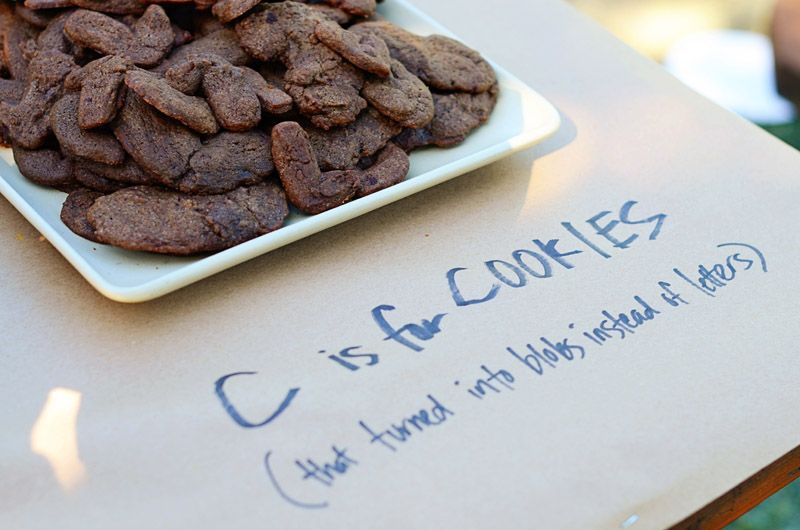 C is for COOKIES
(that turned into blobs instead of letters)